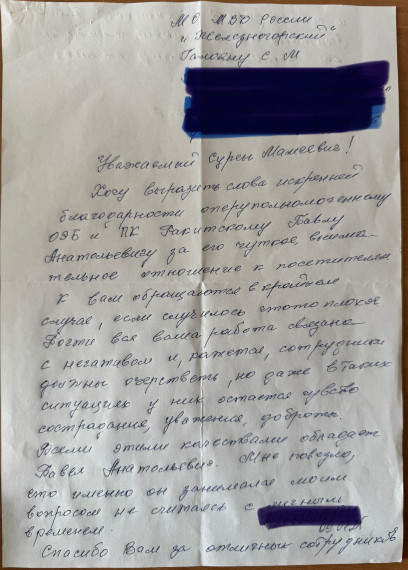 МО МВО России
"Железногорский"
Галояну С. М
Уважаемый Сурен Мамеевич!
Хочу выразить слова искренней
благодарности оперуполномоченному
ОЭБ и ПК Ракитскому Павлу
Анатольевичу за его чуткое внима-
тельное отношение к посетителям
К вам обращаются в крайнем
случае, если случилось что-то плохое
Почти вся ваша работа связана
с негативом и, кажется, сотрудники
должны очерстветь, но даже в таких
ситуациях у них остается чувство
сострадания, уважения, доброты.
Всеми этими качествами обладает
Павел Анатольевич. Мне повезло,
что именно он занимался моим
вопросом не считаясь с личным
временем.
Спасибо Вам за отличных сотрудников